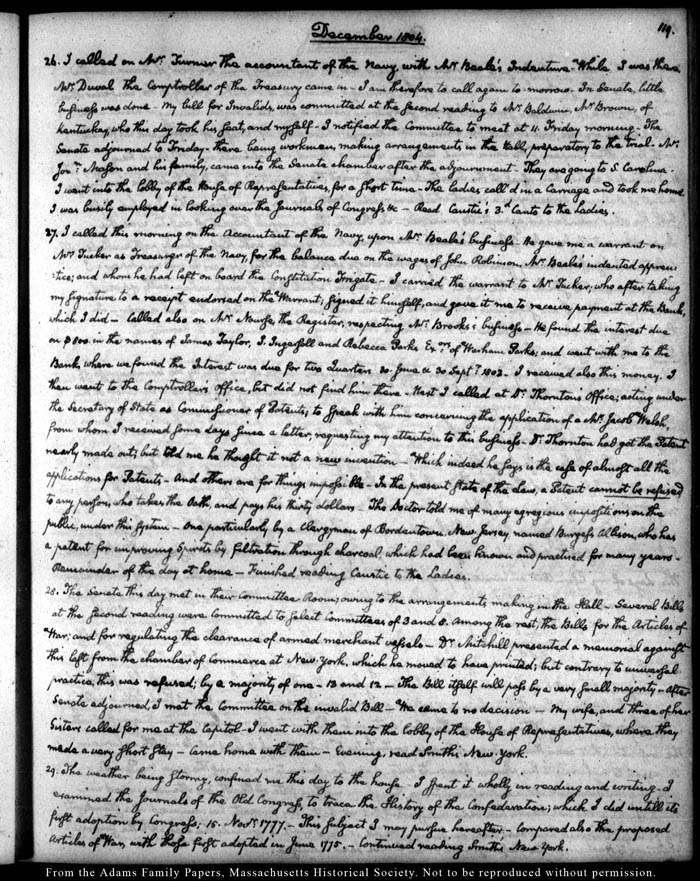 119.
December 1804.
26. I called on Mr. Turner the accountant of the Navy, with Mr. Beale's Indenture. While I was there
Mr. Duval the Comptroller of the Treasury came in - I am therefore to call again to-morrow. In Senate, little
business was done - My bill for Invalids, was committed at the second reading to Mr. Baldwin, Mr. Brown, of
Kentuckey, who this day took his seat, and myself - I notified the Committee to meet at 11. Friday morning - The
Senate adjourned to Friday - there being workmen, making arrangements in the Hall, preparatory to the trial - Mr.
Jonn. Mason and his family, came into the Senate chamber after the adjournment - They are going to S. Carolina.
I went into the lobby of the House of Representatives, for a short time - The ladies call'd in a Carriage and took me home.
I was busily employed in looking over the Journals of Congress &c - Read Caustic's 3.d Canto to the Ladies.
27. I called this morning on the Accountant of the Navy, upon Mr. Beale's business. He gave me a warrant on
Mr. Tucker as Treasurer of the Navy, for the balance due on the wages of John Robinson, Mr. Beale's indented appren
:tice; and whom he had left on board the Constitution Frigate - I carried the warrant to Mr. Tucker; who after taking
my signature to a receipt endorsed on the Warrant, signed it himself, and gave it me to receive payment at the Bank,
which I did - Called also on Mr. Nourse, the Register, respecting Mr. Brooks's business - He found the interest due
on $800. in the names of James Taylor, J. Ingersoll and Rebecca Parks Exors. of Warham Parks; and went with me to the
Bank, where we found the Interest was due for two Quarters 30. June & 30 Septr. 1803. I received also this money. I
then went to the Comptroller's office, but did not find him there - Next I called at Dr. Thornton's Office; acting under
the Secretary of State as Commissioner of Patents; to speak with him concerning the application of a Mr. Jacob Welsh,
from whom I received some days since a letter, requesting my attention to this business - Dr. Thornton had got the Patent
nearly made out; but told me he thought it not a new invention - Which indeed he says is the case of almost all the
applications for Patents - And others are for things impossible - In the present state of the Law, a Patent cannot be refused
to any person, who takes the Oath, and pays his thirty dollars - The Doctor told me of many egregious impositions on the
public, under this system - One particularly by a Clergyman of Bordentown New Jersey, named Burgess Allison, who has
a patent for improving Spirits by filtration through charcoal, which had been known and practised for many years -
Remainder of the day at home - Finished reading Caustic to the Ladies.
28. The Senate this day met in their Committee Room; owing to the arrangements making in the Hall - Several Bills
at the second reading were committed to select Committees of 3 and 5. Among the rest, the Bills for the Articles of
War; and for regulating the clearance of armed merchant vessels - Dr. Mitchell presented a memorial against
this last from the chamber of Commerce at New-York, which he moved to have printed; but contrary to universal
practice, this was refused; by a majority of one - 13 and 12 - The Bill itself will pass by a very small majority - After
Senate adjourned, I met the Committee on the invalid Bill - We came to no decision - My wife, and three of her
Sisters called for me at the Capitol - I went with them into the lobby of the House of Representatives, where they
made a very short stay - Came home with them - Evening, read Smith's New York.
29. The weather being stormy, confined me this day to the house - I spent it wholly in reading and writing - I
examined the Journals of the Old Congress, to trace the History of the Confederation; which I did untill its
first adoption by Congress; 15. Novr. 1777. - This subject I may pursue hereafter - Compared also the proposed
Articles of War, with those first adopted in June 1775. - Continued reading Smith's New York.
From the Adams Family Papers, Massachusetts Historical Society. Not to be reproduced without permission.